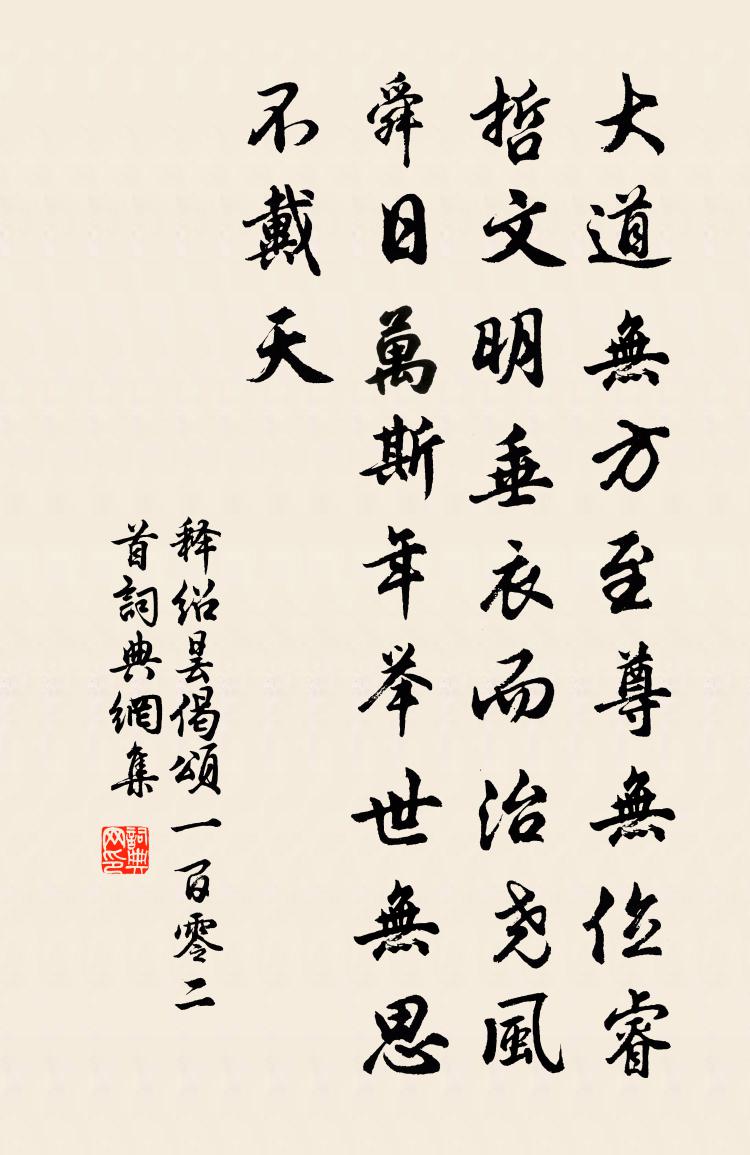 大道無方至尊無位睿
哲文明垂衣而治尧風
舜日萬斯年举世無思
不戴天
释紹昙偈頌一百零二
首詞典網集
詞典
网印